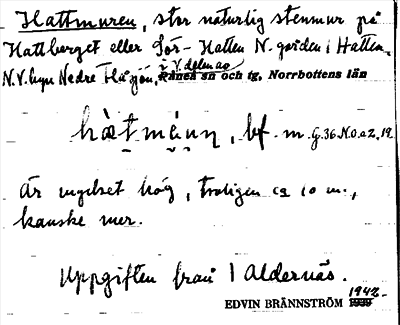 Hattmuren, stor naturlig stenmur på
Hattberget eller Sör-Hatten N. gården i Hatten,
N.V. byn Nedre Flåsjön, i V. delen av
Råneå sn och tg, Norrbottens län
hàtmánn, bf. m. G.36.N.o.a2.19.
Är mycket hög, troligen ca 10 m.,
kanske mer.
Uppgiften från I Aldernäs.
1942
EDVIN BRÄNNSTRÖM 1939